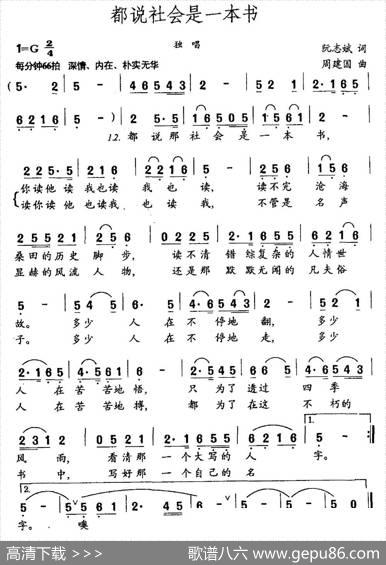 都说社会是一本书
1=G 2/4
独唱
阮志斌 词
每分钟66拍 深情、内在、朴实无华
周建国 曲
(5· 2 | 5 - | 46543 | 2 - | 4 3212 |
6216 | 5 -) | 2 2·5 | 16501 | 6 5 1 | 5 - |
12.都 说那 社会 是 一 本 书,
225·5 | 2165 | 2 - | 5· 5 | 2 1656 |
你读他读 我也读 我 也 读, 读不完 沧海
读你读他 也读我 也 读, 不管是 名声
25521 | 2·1 2 | 0225 | 2·165 | 45225 |
桑田的历史 脚 步, 读不清 错综复杂的 人情世
显赫的风流 人 物, 还是那 默默无闻的 凡夫俗
5 - | 54 5 | 6· 5 | 2·4 6543 | 2 - | 54 5 |
故。 多少 人 在 不停地 翻, 多少
子。 多少 人 在 不停地 走, 多少
2·165 | 4·561 | 2 - | 5· 2 | 4·65 | 1·2 165 |
人 在 苦苦地 悟, 只 为了 透过 四季
人 在 苦苦地 搏, 都 为了 在这 不朽的
2312 | 0521 | 5521 | 6216 | 5 - |
1.
风 雨, 看清那 一个大写的 人 字。
书 中, 写好那 一个自己的 名
2.
字。 噢
高清下载 >>>
歌谱八六 www.gepu86.com